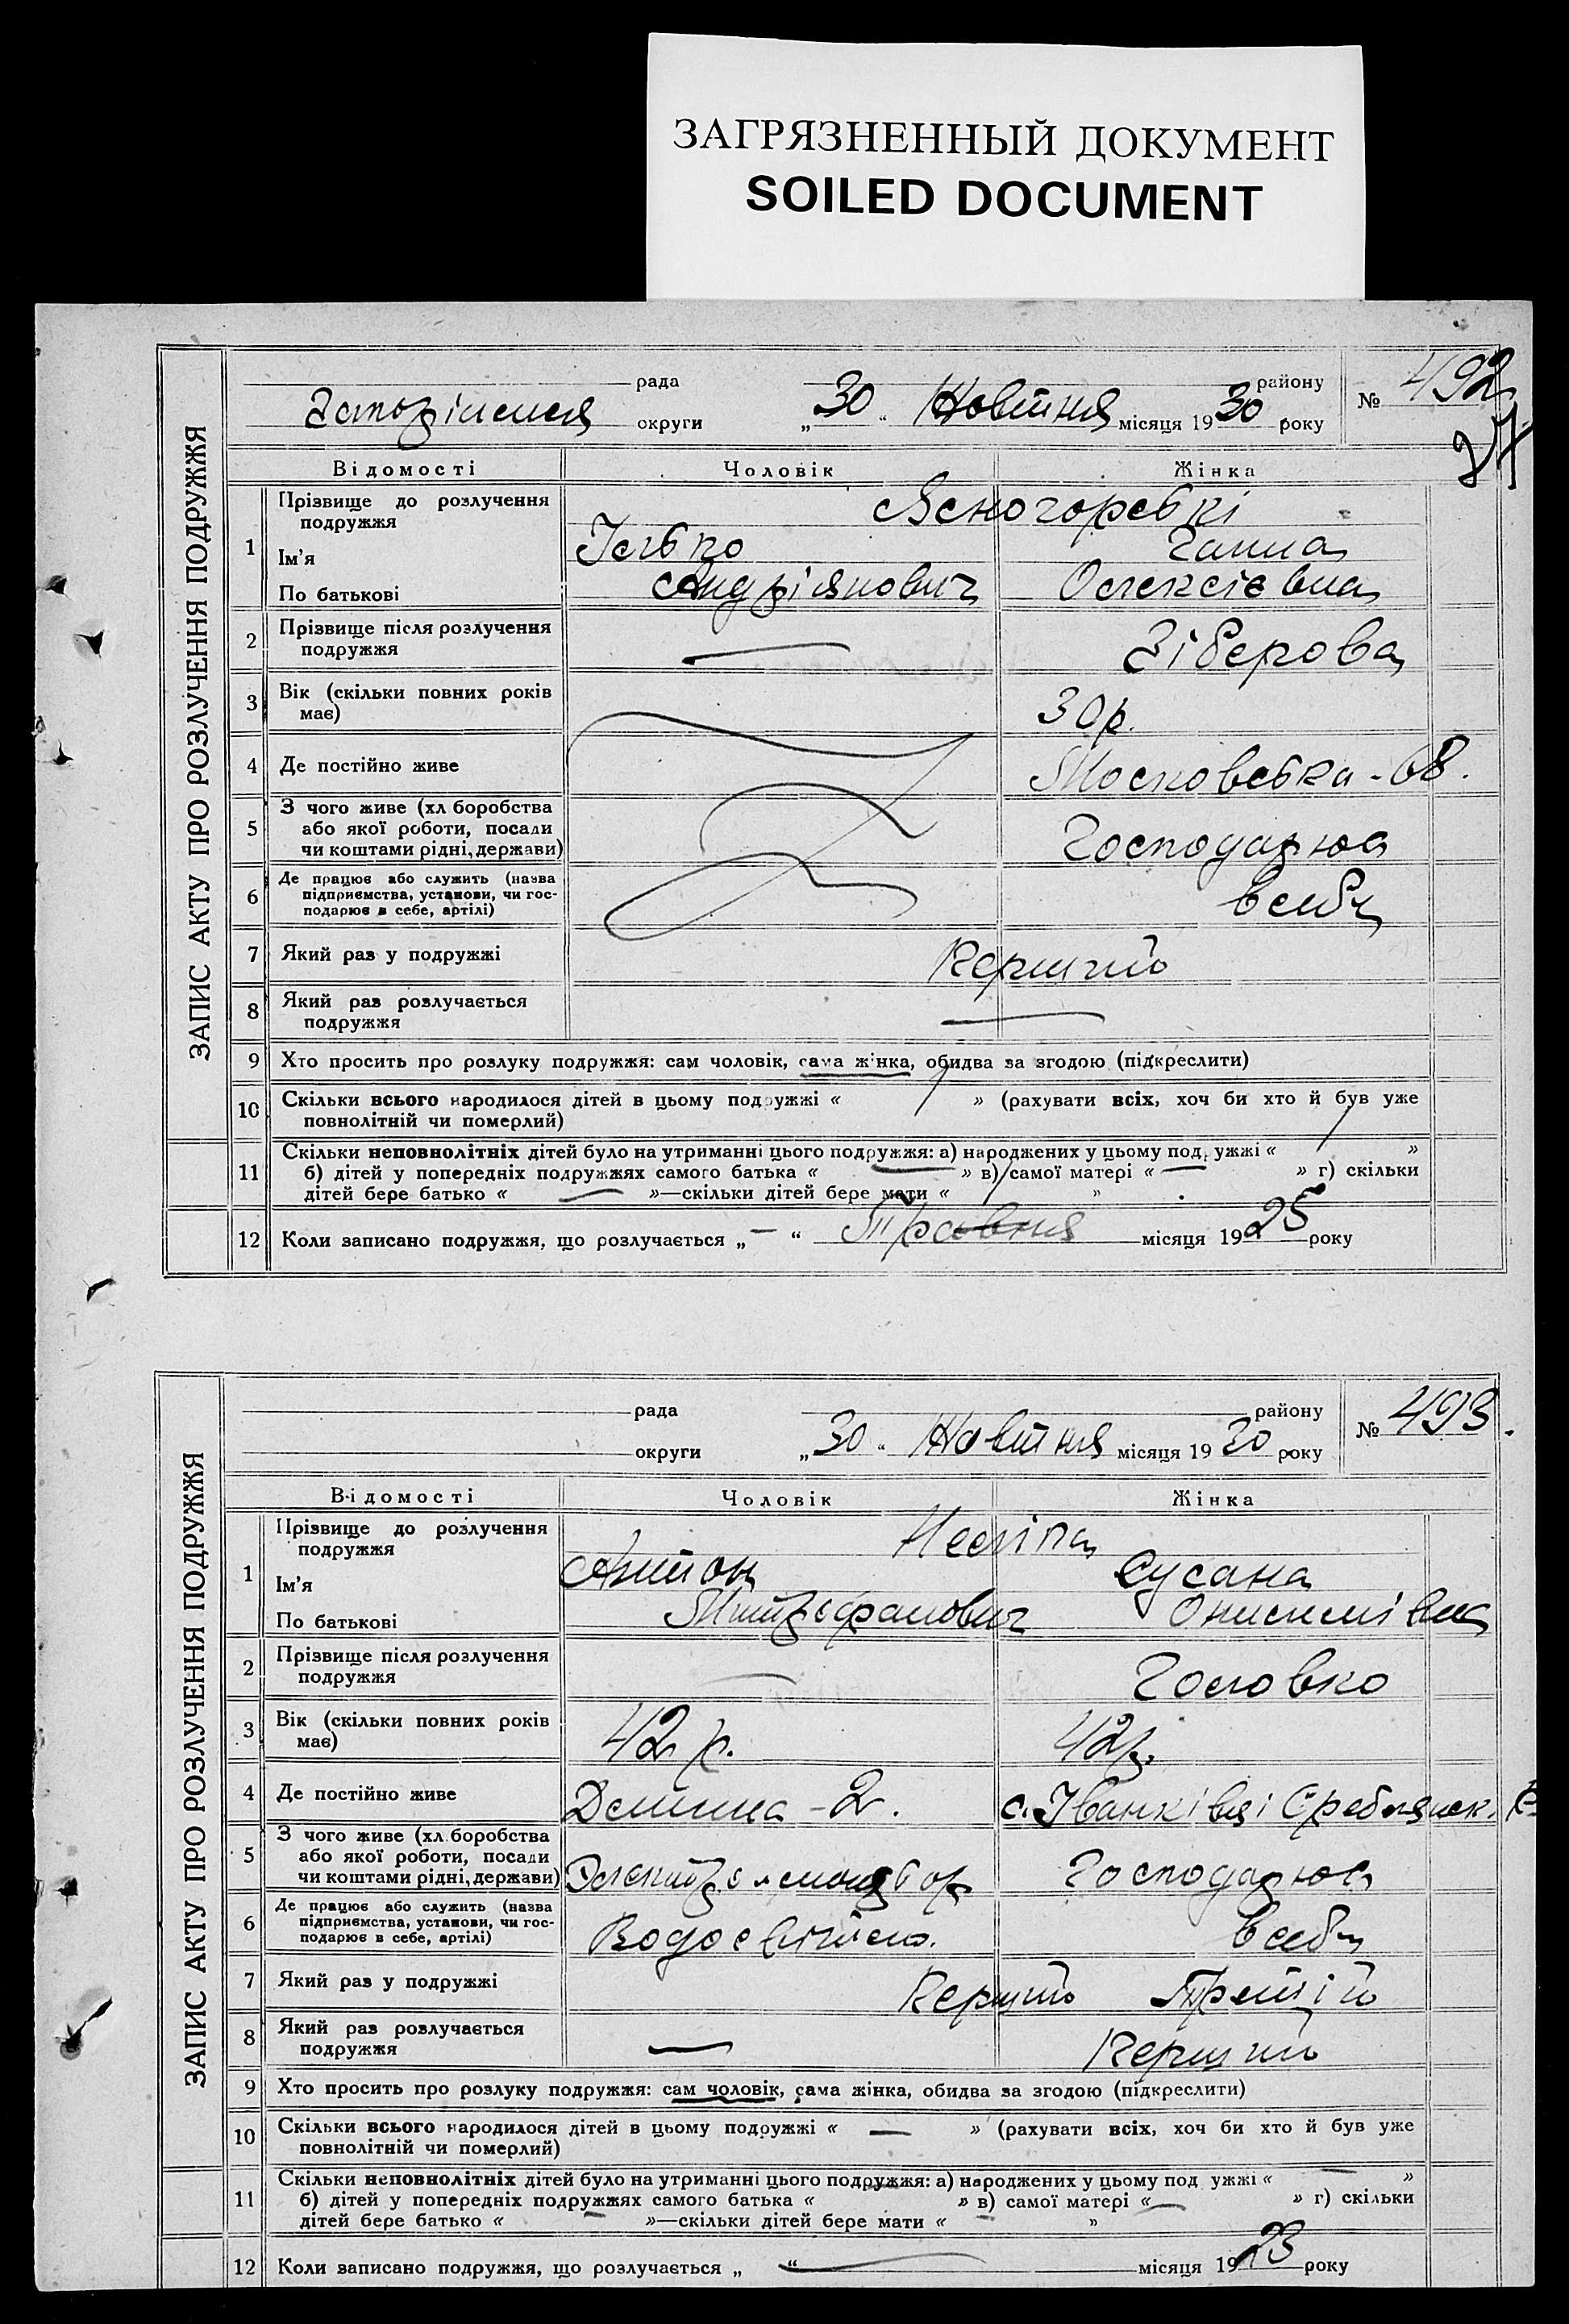 ЗАГРЯЗНЕННЫЙ ДОКУМЕНТ
SOILED DOCUMENT
ЗАПИС АКТУ ПРО РОЗЛУЧЕННЯ ПОДРУЖЖЯ
рада району № 492
округи „30“ Жовтня місяця 1930 року
27
Відомості Чоловік Жінка
1 Прізвище до розлучення подружжя Ясногорські
Ім'я Ілько Ганна
По батькові Андріянович Олексієвна
2 Прізвище після розлучення подружжя — Зіберова
3 Вік (скільки повних років має) 30 р.
4 Де постійно живе Московська - 68.
5 З чого живе (хл боробства або якої роботи, посади чи коштами рідні, держави) Господарює
6 Де працює або служить (назва підприємства, установи, чи господарює в себе, артілі) в себе
7 Який раз у подружжі Перший
8 Який раз розлучається подружжя —
9 Хто просить про розлуку подружжя: сам чоловік, сама жінка, обидва за згодою (підкреслити)
10 Скільки всього народилося дітей в цьому подружжі « 1 » (рахувати всіх, хоч би хто й був уже
повнолітній чи померлий)
11 Скільки неповнолітніх дітей було на утриманні цього подружжя: а) народжених у цьому подружжі « 1 »
б) дітей у попередніх подружжях самого батька « — » в) самої матері « — » г) скільки
дітей бере батько « — »—скільки дітей бере мати « 1 »
12 Коли записано подружжя, що розлучається „—“ Травня місяця 1925 року
ЗАПИС АКТУ ПРО РОЗЛУЧЕННЯ ПОДРУЖЖЯ
рада району № 493.
округи „30“ Жовтня місяця 1930 року
Відомості Чоловік Жінка
1 Прізвище до розлучення подружжя
Ім'я Антон Сусана
По батькові Митрофанович Онисимівна
2 Прізвище після розлучення подружжя — Головко
3 Вік (скільки повних років має) 42 р. 42 р.
4 Де постійно живе - 2. с. Іванківці
5 З чого живе (хл боробства або якої роботи, посади чи коштами рідні, держави) Господарює
6 Де працює або служить (назва підприємства, установи, чи господарює в себе, артілі) в себе
7 Який раз у подружжі Перший Третій
8 Який раз розлучається подружжя — Перший
9 Хто просить про розлуку подружжя: сам чоловік, сама жінка, обидва за згодою (підкреслити)
10 Скільки всього народилося дітей в цьому подружжі « — » (рахувати всіх, хоч би хто й був уже
повнолітній чи померлий)
11 Скільки неповнолітніх дітей було на утриманні цього подружжя: а) народжених у цьому подружжі « — »
б) дітей у попередніх подружжях самого батька « — » в) самої матері « — » г) скільки
дітей бере батько « — »—скільки дітей бере мати « — »
12 Коли записано подружжя, що розлучається „ “ — місяця 1923 року